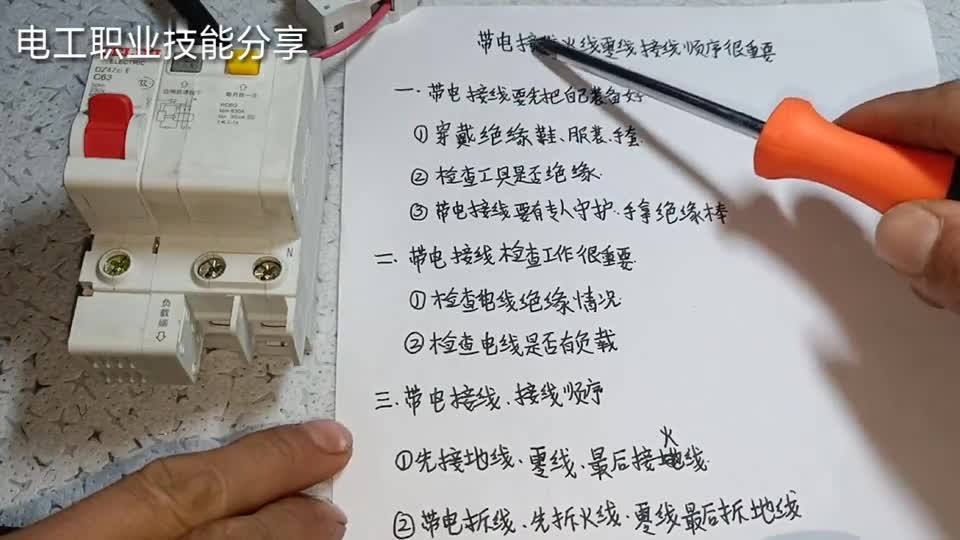 电工职业技能分享
ELECTRIC
DZ47
C63
N
负载端
带电接 火线零线接线顺序很重要
一.带电接线要先把自己装备好
①穿戴绝缘鞋、服装、手套
②检查工具是否绝缘.
③带电接线要有专人守护.手拿绝缘棒
二.带电接线检查工作很重要.
①检查电线绝缘情况
②检查电线是否有负载
三.带电接线、接线顺序
①先接地线、零线、最后接火线.
②带电拆线、先拆火线、零线最后拆地线